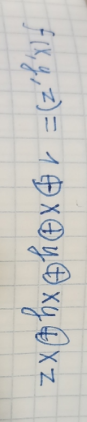 f(x,y,z) = 1⊕x⊕y⊕xy⊕xz